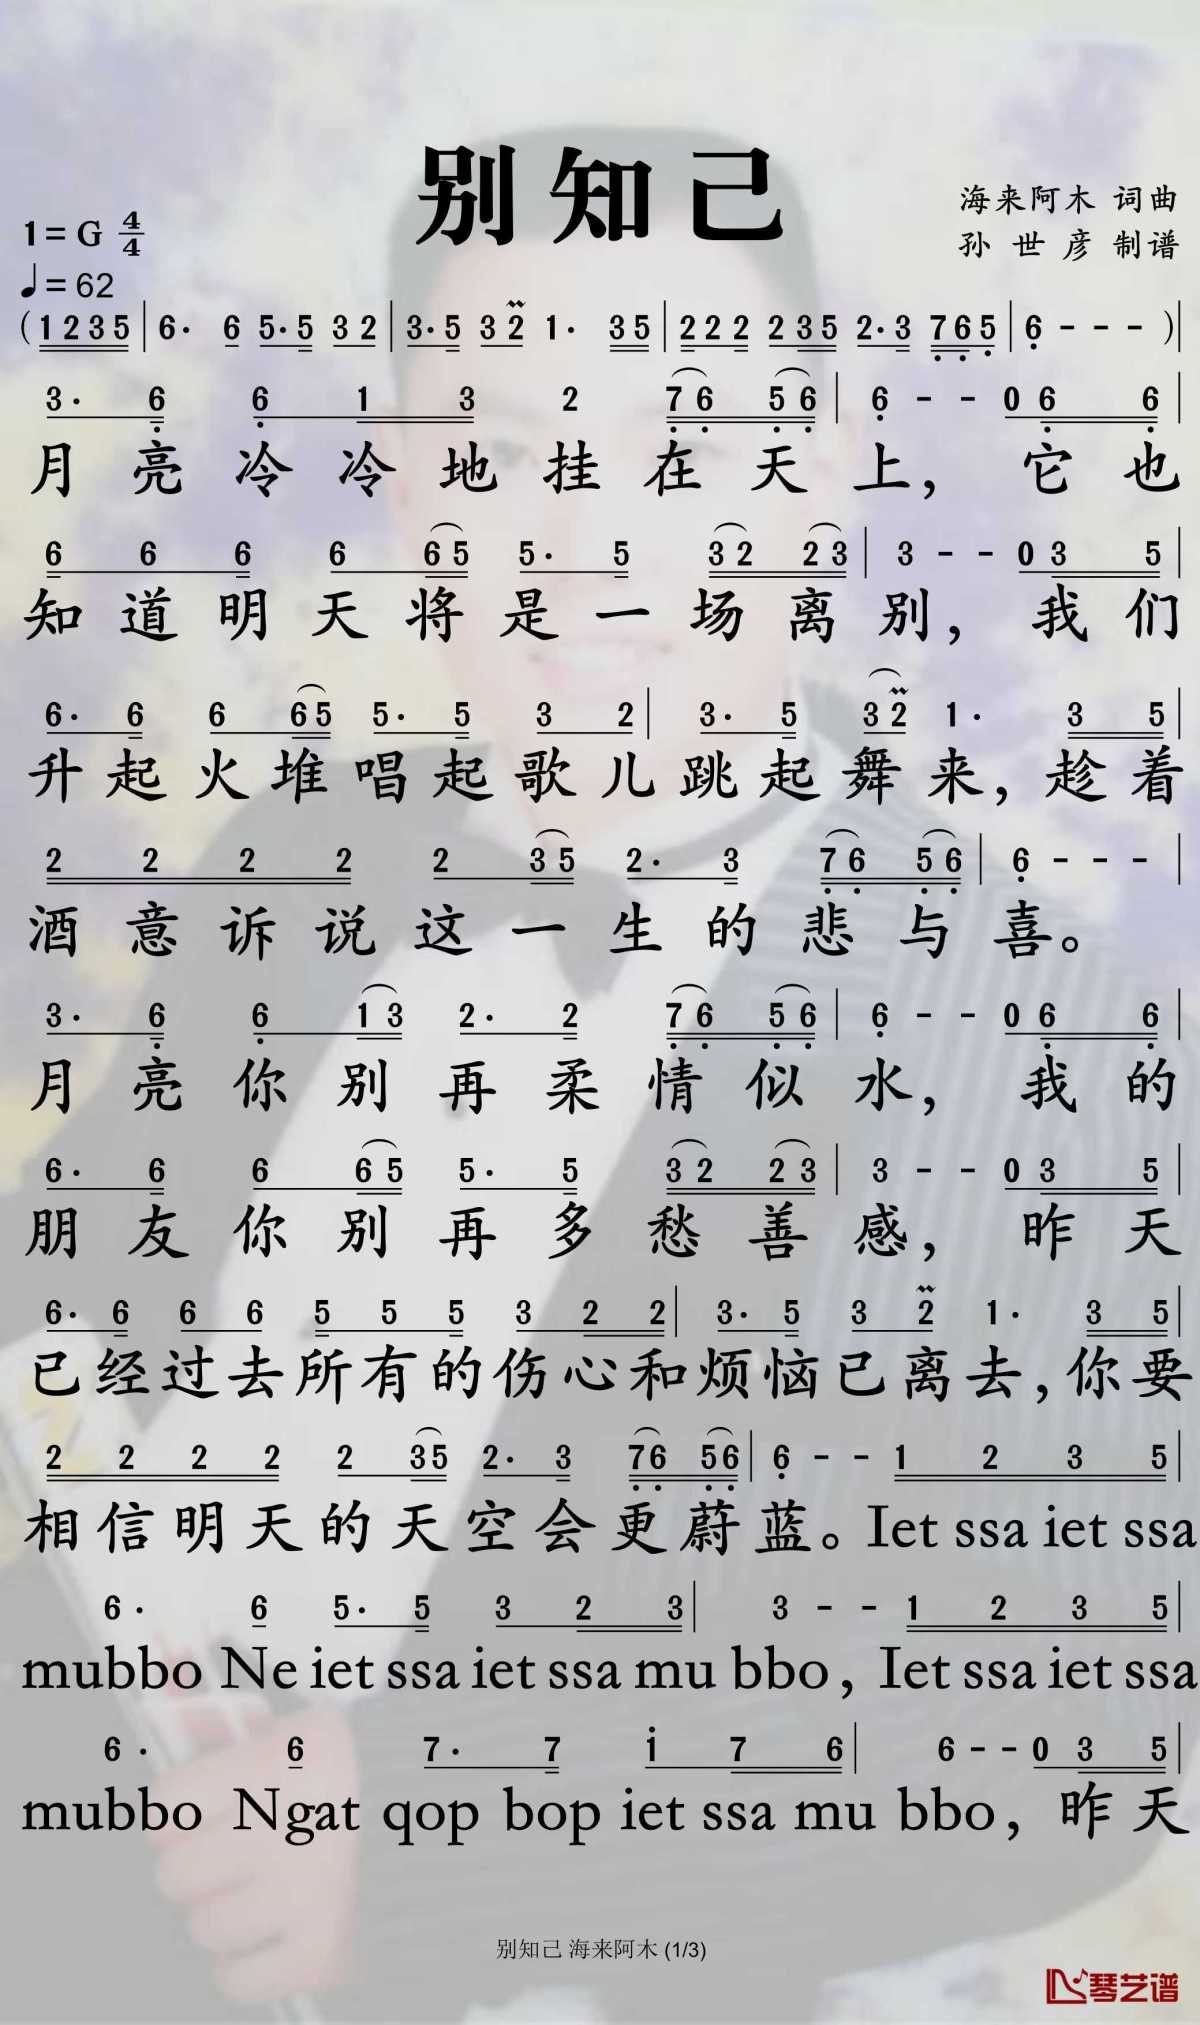 别知己
海来阿木 词曲
孙世彦 制谱
1=G 4/4
♩=62
(1 2 3 5 | 6· 6 5·5 3 2 | 3·5 3 2 1· 3 5 | 2 2 2 2 3 5 2·3 7 6 5 | 6 - - - ) |
3· 6 6 1 3 2 7 6 5 6 | 6 - - 0 6 6 |
月亮冷冷地挂在天上，它也
6 6 6 6 6 5 5· 5 3 2 2 3 | 3 - - 0 3 5 |
知道明天将是一场离别，我们
6· 6 6 6 5 5· 5 3 2 | 3· 5 3 2 1· 3 5 |
升起火堆唱起歌儿跳起舞来，趁着
2 2 2 2 2 3 5 2· 3 7 6 5 6 | 6 - - - |
酒意诉说这一生的悲与喜。
3· 6 6 1 3 2· 2 7 6 5 6 | 6 - - 0 6 6 |
月亮你别再柔情似水，我的
6· 6 6 6 5 5· 5 3 2 2 3 | 3 - - 0 3 5 |
朋友你别再多愁善感，昨天
6· 6 6 6 5 5 5 3 2 2 | 3· 5 3 2 1· 3 5 |
已经过去所有的伤心和烦恼已离去，你要
2 2 2 2 2 3 5 2· 3 7 6 5 6 | 6 - - 1 2 3 5 |
相信明天的天空会更蔚蓝。Iet ssa iet ssa
6· 6 5· 5 3 2 3 | 3 - - 1 2 3 5 |
mubbo Ne iet ssa iet ssa mu bbo，Iet ssa iet ssa
6· 6 7· 7 1 7 6 | 6 - - 0 3 5 |
mubbo Ngat qop bop iet ssa mu bbo，昨天
别知己 海来阿木 (1/3)
琴艺谱